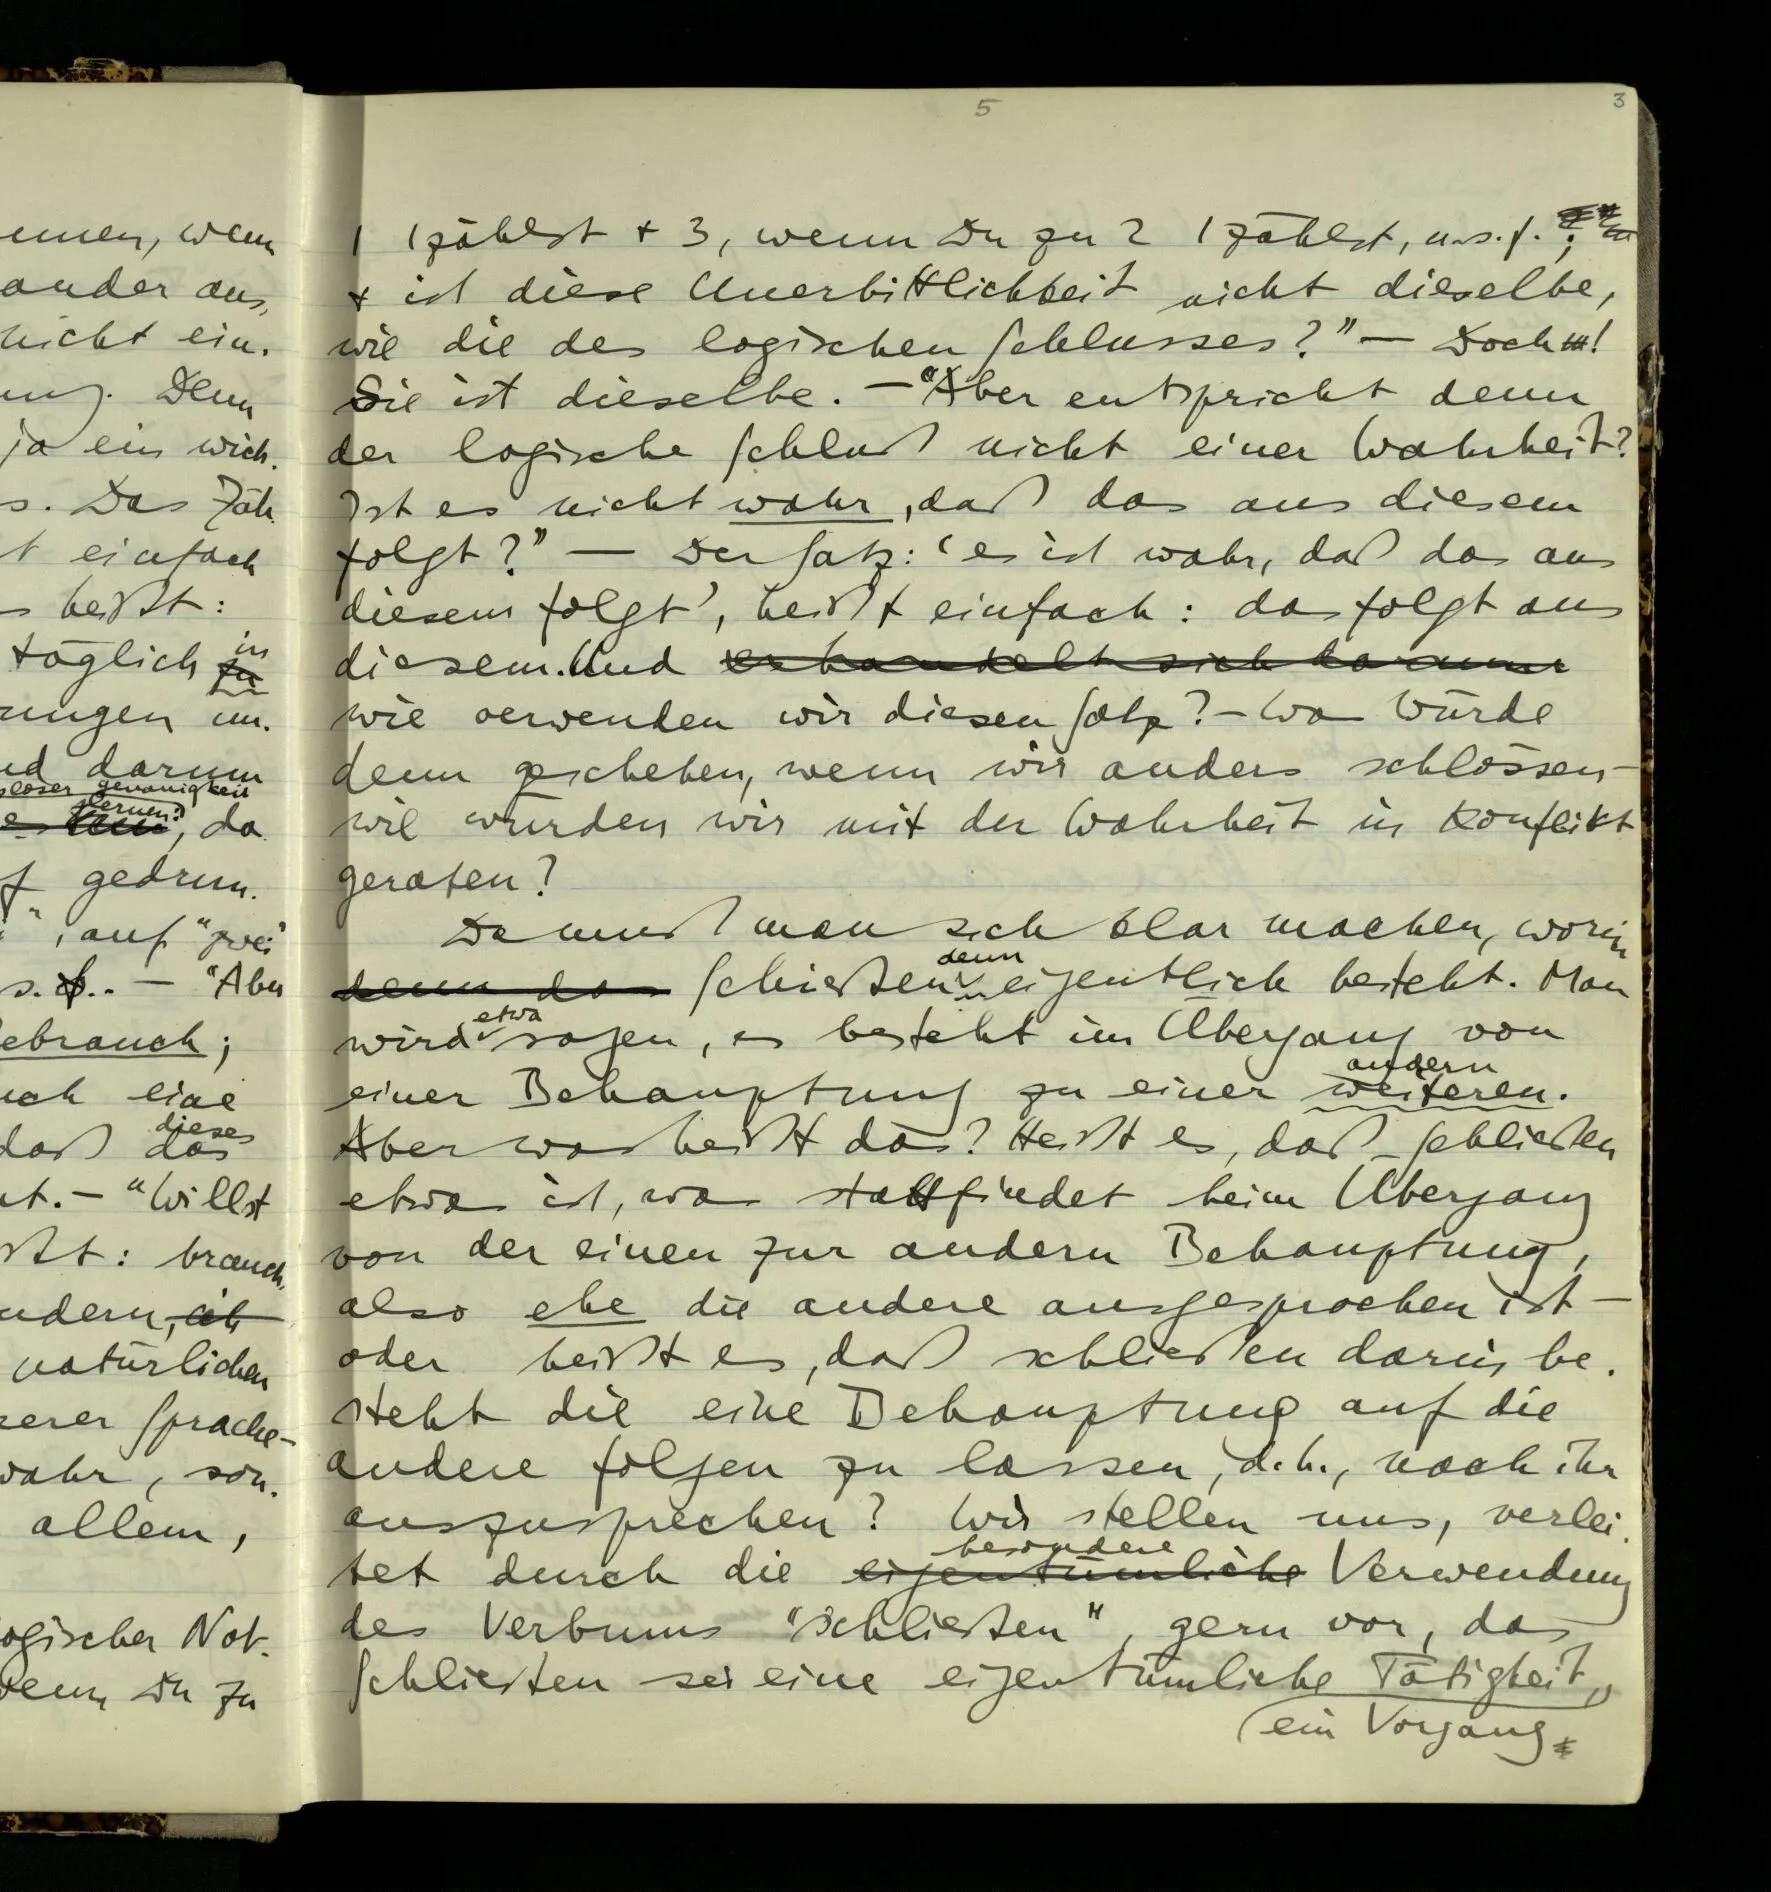 5
3
1 1 zählst + 3, wenn Du zu 2 1 zählst, u.s.f.;
+ ist diese Unerbittlichkeit nicht dieselbe,
wie die des logischen Schlusses?” — Doch!
Sie ist dieselbe. — “Aber entspricht denn
der logische Schluß nicht einer Wahrheit?
Ist es nicht wahr, daß das aus diesem
folgt?” — Der Satz: ‘es ist wahr, daß das aus
diesem folgt’, heißt einfach: das folgt aus
diesem. Und es handelt sich darum
wie verwenden wir diesen Satz? – Was würde
denn geschehen, wenn wir anders schlössen –
wie würden wir mit der Wahrheit in Konflikt
geraten?
Da muß man sich klar machen, worin
denn
denn das Schließen eigentlich besteht. Man
etwa
wird sagen, es besteht im Übergang von
andern
einer Behauptung zu einer weiteren.
Aber was heißt das? Heißt es, daß Schließen
etwas ist, was stattfindet beim Übergang
von der einen zur andern Behauptung,
also ehe die andere ausgesprochen ist –
oder heißt es, daß schließen darin be-
steht die eine Behauptung auf die
andere folgen zu lassen, d.h., nach ihr
auszusprechen? Wir stellen uns, verlei-
besondere
tet durch die eigentümliche Verwendung
des Verbums “schließen”, gern vor, das
Schließen sei eine eigentümliche Tätigkeit,
ein Vorgang
wenn
ander aus,
nicht ein.
Denn
ja ein wich-
s. Das Zäh-
t einfach
s heißt:
in
täglich zu
rungen un-
nd darum
sloser Genauigkeit
lernen:
, da
f gedrun-
”, auf “zwei”
s.f.. — “Aber
ebrauch;
uch eine
dieses
daß das
ht. – “Willst
ßt: brauch-
ndern, ich
natürlichen
serer Sprache –
wahr, son-
allem,
ogischer Not-
wenn Du zu